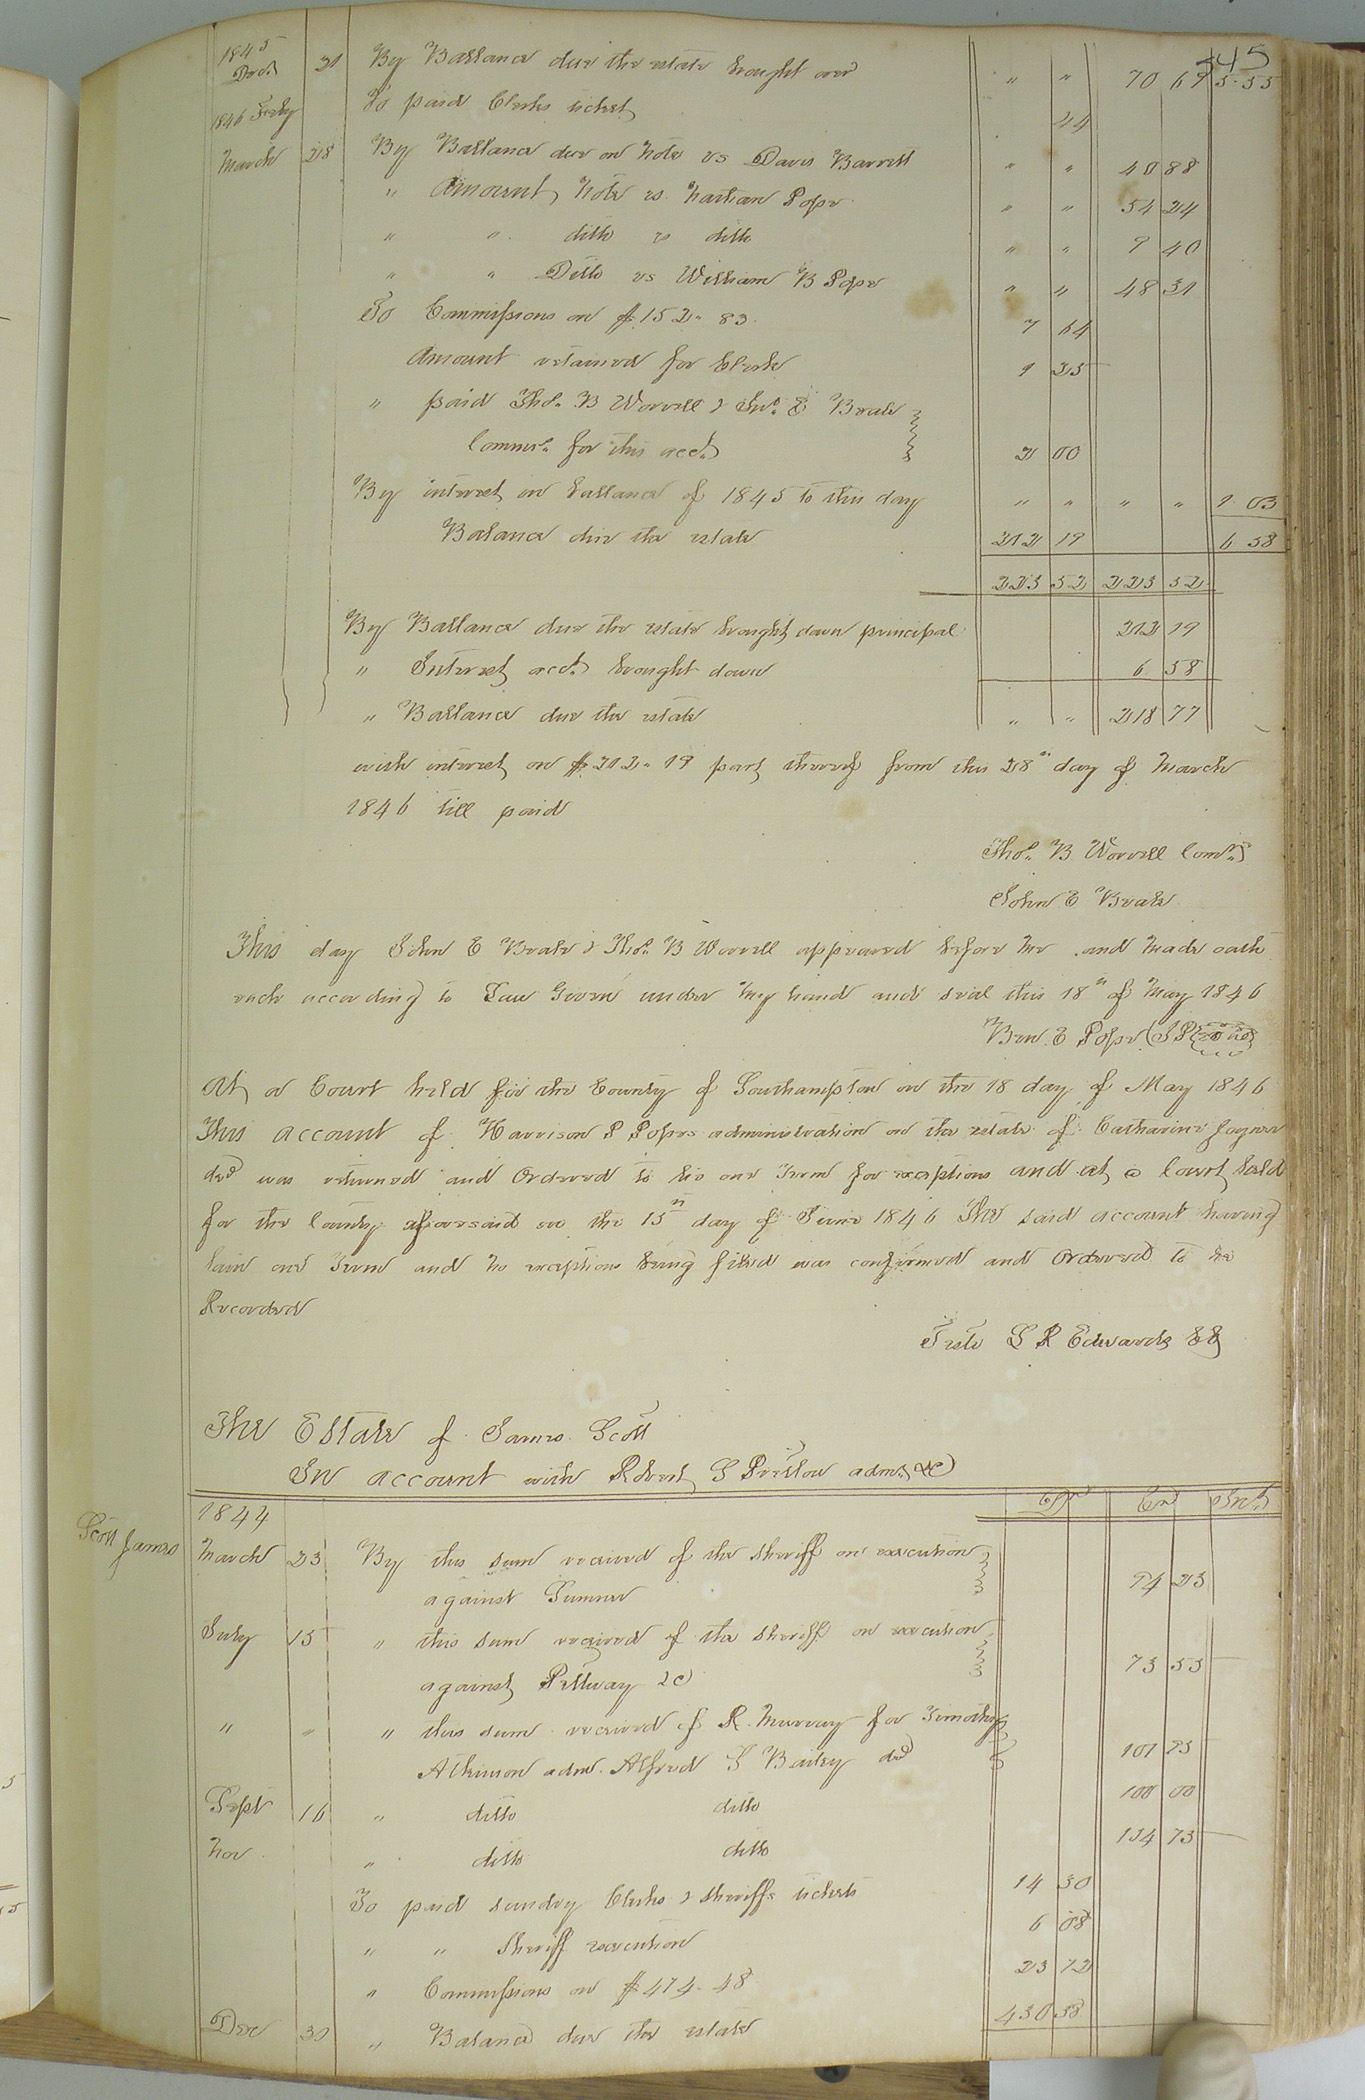 345
1845 Decr 31 By Ballance due the estate brought over " " 70 69 5.55
1846 Feby To paid Clerks ticket 44
March 28 By Ballance due on note vs Davis Barrett " " 40 88
" Amount note vs Nathan Pope " " 54 24
" " ditto vs ditto " " 9 40
" " Ditto vs William B Pope " " 48 31
To Commissions on $152.83 7 64
Amount retained for Clerk 1 25
" paid Thos. B Worrell & Jno. E Beale
Commrs. for this acct. 2 00
By interest on ballance of 1845 to this day " " " " 1.03
Balance due the estate 212 19 6 58
223 52 223 52
By Ballance due the estate brought down principal 212 19
" Interest acct. brought down 6 58
" Ballance due the estate " " 218 77
with interest on $212.19 part thereof from this 28th day of March
1846 till paid
Thos. B Worrell Comrs
John E Beale
This day John E Beale & Thos. B Worrell appeared before me and made oath
each according to Law Given under my hand and seal this 18th of May 1846
Ben. E Pope JP
At a Court held for the County of Southampton on the 18 day of May 1846
This account of Harrison P Popes administration on the estate of Catharine Joyner
decd was returned and Ordered to lie one Term for exceptions and at a Court held
for the County aforesaid on the 15th day of June 1846 The said account having
lain one Term and no exceptions being filed was confirmed and Ordered to be
Recorded
Teste L R Edwards CC
The Estate of James Scott
In account with Robert S Preston admr. &c
1844 Dr Cr Int.
Scott James
March 23 By this sum received of the sheriff on execution
against Sumner 94 23
July 15 " this sum received of the sheriff on execution
against Pettway &c 73 55
" " " this sum received of R. Murray for Timothy
Atkinson adm. Alfred S Bailey decd 101 95
Sept 16 " ditto ditto 100 00
Nov " ditto ditto 134 73
To paid sundry Clerks & sheriffs tickets 14 30
" " Sheriff execution 6 08
" Commissions on $474.48 23 72
Dec 30 " Balance due the estate 430 38